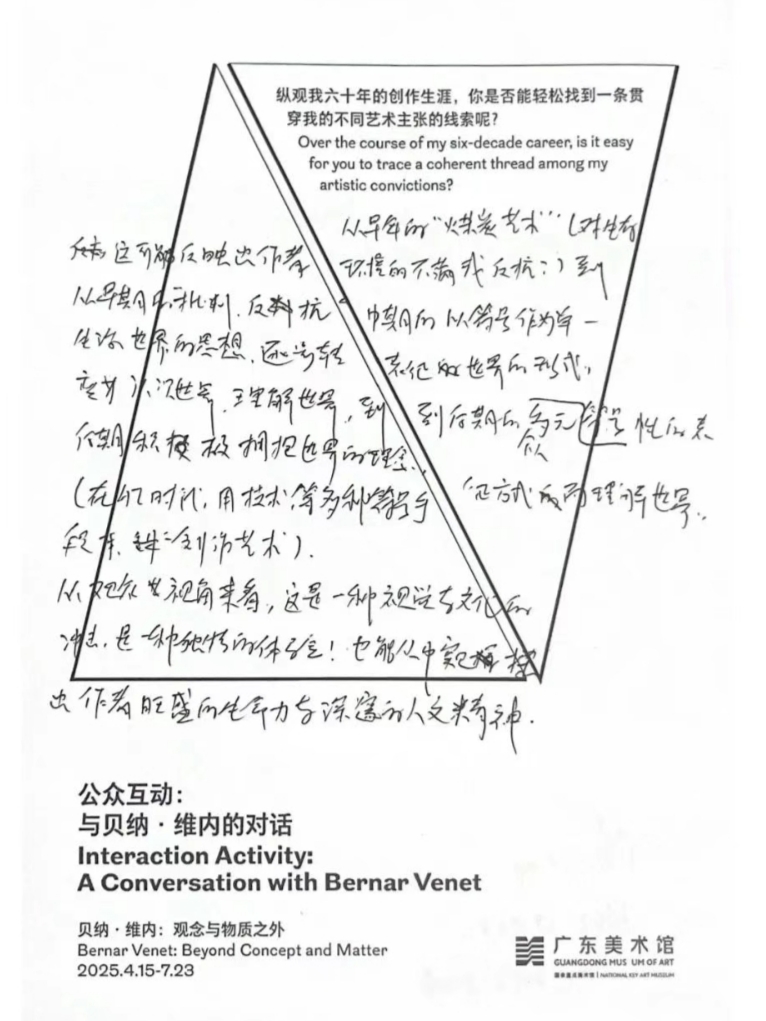 纵观我六十年的创作生涯，你是否能轻松找到一条贯
穿我的不同艺术主张的线索呢？
Over the course of my six-decade career, is it easy
for you to trace a coherent thread among my
artistic convictions?
从早年的“煤炭艺术”（对生存
环境的不满或反抗：）到
中期的从符号作为单一
表征的世界的形式，
到后期的多元符号性的表
征方式 而理解世界。
这可能反映出作者
从早期的批判、反抗
生活世界的思想，逐步转
变为 世界、理解世界，到
后期积极拥抱世界的理念，
（在AI时代，用技术等多种符号手
段来 创作艺术）。
从观众 视角来看，这是一种视觉与文化的
冲击，是一种独特的体验！也能从中窥探
出作者旺盛的生命力与深邃的人文精神．
公众互动：
与贝纳·维内的对话
Interaction Activity:
A Conversation with Bernar Venet
贝纳·维内：观念与物质之外
Bernar Venet: Beyond Concept and Matter
2025.4.15-7.23
广东美术馆
GUANGDONG MUS UM OF ART
国家重点美术馆 | NATIONAL KEY ART MUSEUM